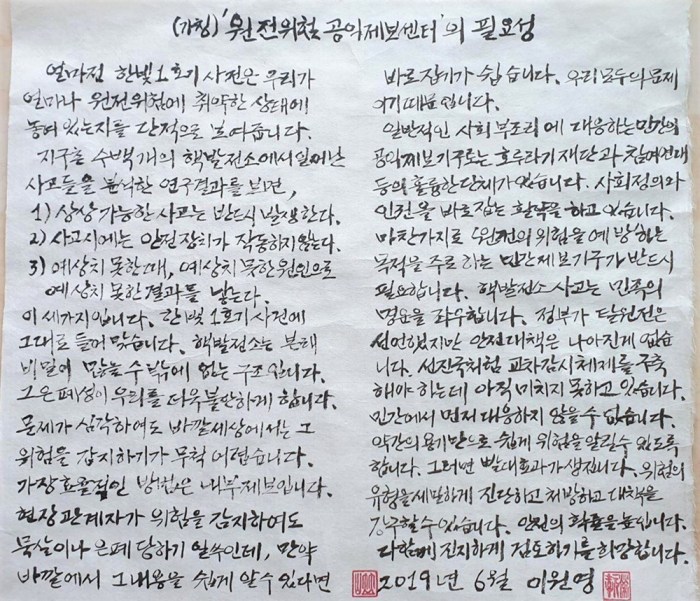 (가칭) '원전위험 공익제보센터'의 필요성
얼마전 한빛1호기 사건은 우리가
얼마나 원전위험에 취약한 상태에
놓여 있는지를 단적으로 보여줍니다.
지구촌 수백개의 핵발전소에서 일어난
사고들을 분석한 연구결과를 보면,
1) 상상 가능한 사고는 반드시 발생한다.
2) 사고시에는 안전장치가 작동하지않는다.
3) 예상치 못한 때, 예상치 못한 원인으로
예상치 못한 결과를 낳는다.
이 세가지입니다. 한빛1호기 사건에
그대로 들어 맞습니다. 핵발전소는 본래
비밀이 많을 수 밖에 없는 구조입니다.
그 은폐성이 우리를 더욱 불안하게 합니다.
문제가 심각하여도 바깥세상에서는 그
위험을 감지하기가 무척 어렵습니다.
가장 효율적인 방법은 내부제보입니다.
현장관계자가 위험을 감지하여도
묵살이나 은폐 당하기 일쑤인데, 만약
바깥에서 그 내용을 쉽게 알 수 있다면
바로잡기가 쉽습니다. 우리 모두의 문제
이기 때문입니다.
일반적인 사회 부조리에 대응하는 민간의
공익제보기구로는 호루라기 재단과 참여연대
등의 훌륭한 단체가 있습니다. 사회정의와
인권을 바로잡는 활약을 하고 있습니다.
마찬가지로 원전의 위험을 예방하는
목적을 주로 하는 민간제보기구가 반드시
필요합니다. 핵발전소 사고는 민족의
명운을 좌우합니다. 정부가 탈원전은
선언했지만 안전대책은 나아진게 없습
니다. 선진국처럼 교차감시체제를 구축
해야 하는데 아직 미치지 못하고 있습니다.
민간에서 먼저 대응하지 않을 수 없습니다.
약간의 용기만으로 쉽게 위험을 알릴 수 있도록
합니다. 그러면 빨대효과가 생깁니다. 위험의
유형을 세밀하게 진단하고 처방하고 대책을
강구할 수 있습니다. 안전의 확률을 높입니다.
다함께 진지하게 검토하기를 희망합니다.
2019년 6월 이원영